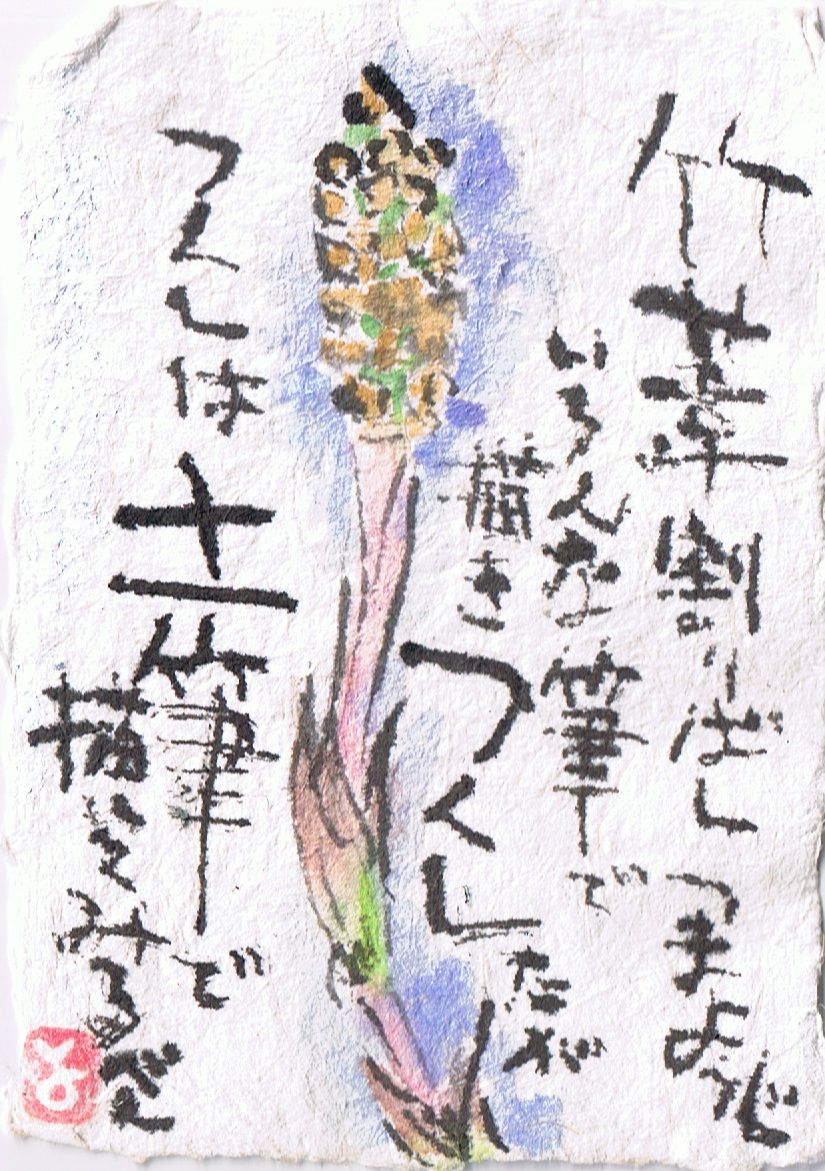 竹草割りばしつまようじ
いろんな筆で
描きつくしたが
つくしは土筆で
描いてみる